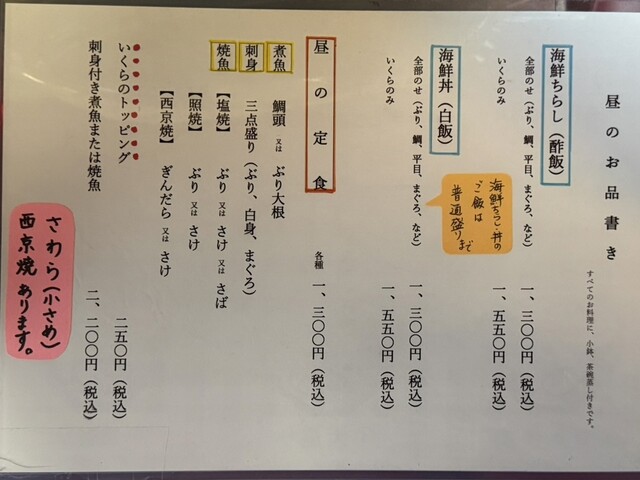 昼のお品書き
すべてのお料理に、小鉢、茶碗蒸し付きです。
海鮮ちらし（酢飯）
全部のせ（ぶり、鯛、平目、まぐろ、など） 一、三〇〇円（税込）
いくらのみ 一、五五〇円（税込）
海鮮丼（白飯）
全部のせ（ぶり、鯛、平目、まぐろ、など） 一、三〇〇円（税込）
いくらのみ 一、五五〇円（税込）
海鮮ちらし、丼の
ご飯は
普通盛りまで
昼の定食 各種 一、三〇〇円（税込）
煮魚 鯛頭 又は ぶり大根
刺身 三点盛り（ぶり、白身、まぐろ）
焼魚 【塩焼】 ぶり 又は さけ 又は さば
【照焼】 ぶり 又は さけ
【西京焼】 ぎんだら 又は さけ
いくらのトッピング 二五〇円（税込）
刺身付き煮魚または焼魚 二、二〇〇円（税込）
さわら（小さめ）
西京焼あります。